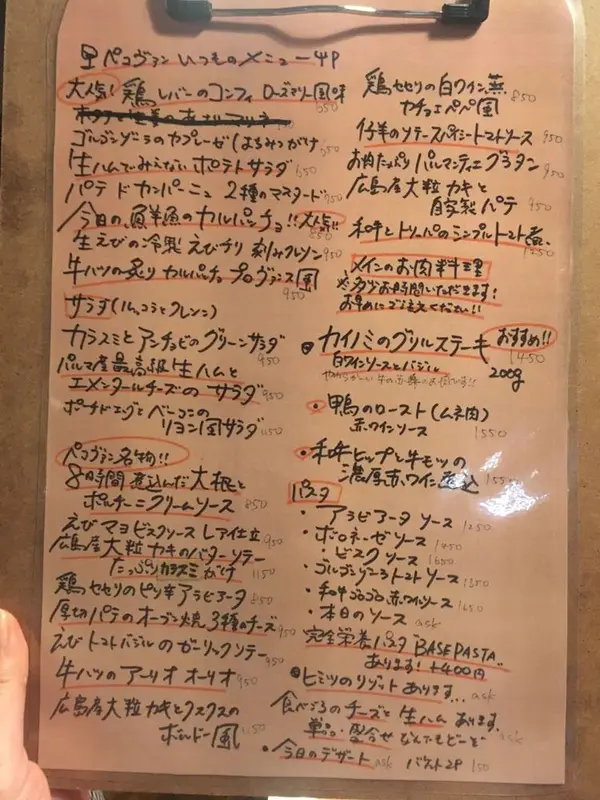 里 ペコヴァン いつものメニュー 4P
大人気! 鶏レバーのコンフィ ローズマリー風味 650
ゴルゴンゾーラのカプレーゼ(はちみつがけ 650
生ハムでみえない ポテトサラダ 650
パテ ド カンパーニュ 2種のマスタード 950
今日の、鮮魚のカルパッチョ!! 大人気!! 850
生えびの冷製 えびチリ 刻みクレソン 950
牛ハツの炙り カルパッチョ プロヴァンス風 950
サラダ(ルッコラとクレソン)
カラスミとアンチョビのグリーンサラダ 950
パルマ産最高級生ハムと
エメンタールチーズの サラダ 950
ポーチドエッグとベーコンの
リヨン風サラダ 1150
ペコヴァン名物!!
8時間煮込んだ大根と
ポルチーニクリームソース 850
えびマヨ ビスクソース レア仕立 950
広島産大粒カキのバターソテー
たっぷりカラスミがけ 1150
鶏セセリのピリ辛アラビアータ 850
厚切パテのオーブン焼 3種のチーズ 950
えびトマトバジルのガーリックソテー 950
牛ハツのアーリオ オーリオ 950
広島産大粒カキとクスクスの
ボルドー風 1150
鶏セセリの白ワイン蒸
カチョエペペ風 850
仔羊のソテースパイシートマトソース 950
お肉たっぷり パルマンティエグラタン 950
広島産大粒カキと
自家製パテ 950
和牛トリッパのシンプルトマト煮 1250
メインのお肉料理
※多少お時間いただきます!
お早めにご注文ください!!
カイノミのグリルステーキ おすすめ!! 1450
白ワインソースとバジル 200g
鴨のロースト(ムネ肉)
赤ワインソース 1550
和牛ヒップと牛モツの
濃厚赤ワイン煮込 1550
パスタ
・アラビアータ ソース 1250
・ボロネーゼ ソース 1450
・ビスク ソース 1650
・ゴルゴンゾーラトマトソース 1650
・和牛ゴロゴロ赤ワインソース 1650
・本日の ソース ask
完全栄養パスタ "BASE PASTA"
あります! +400円
・ヒミツのリゾットあります... ask
食べごろのチーズと生ハムあります。
単品・盛合せなんでもどーぞ ask
・今日のデザート ask バゲット2P 150